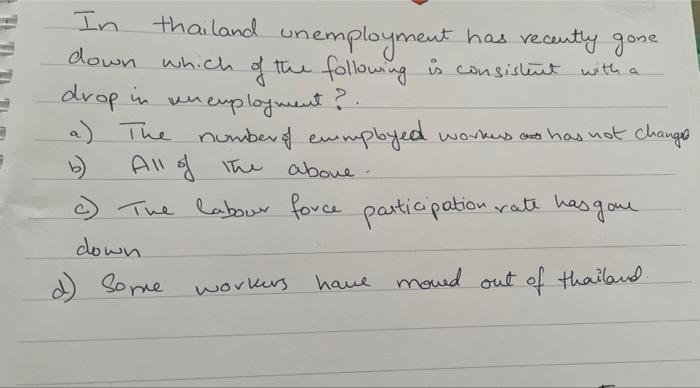 In thailand unemployment has recently gone
down which of the following is consistent with a
drop in unemployment?.
a) The number of eumployed workers has not changed
b) All of the above.
c) The labour force participation rate has gone
down
d) Some workers have moved out of thailand.